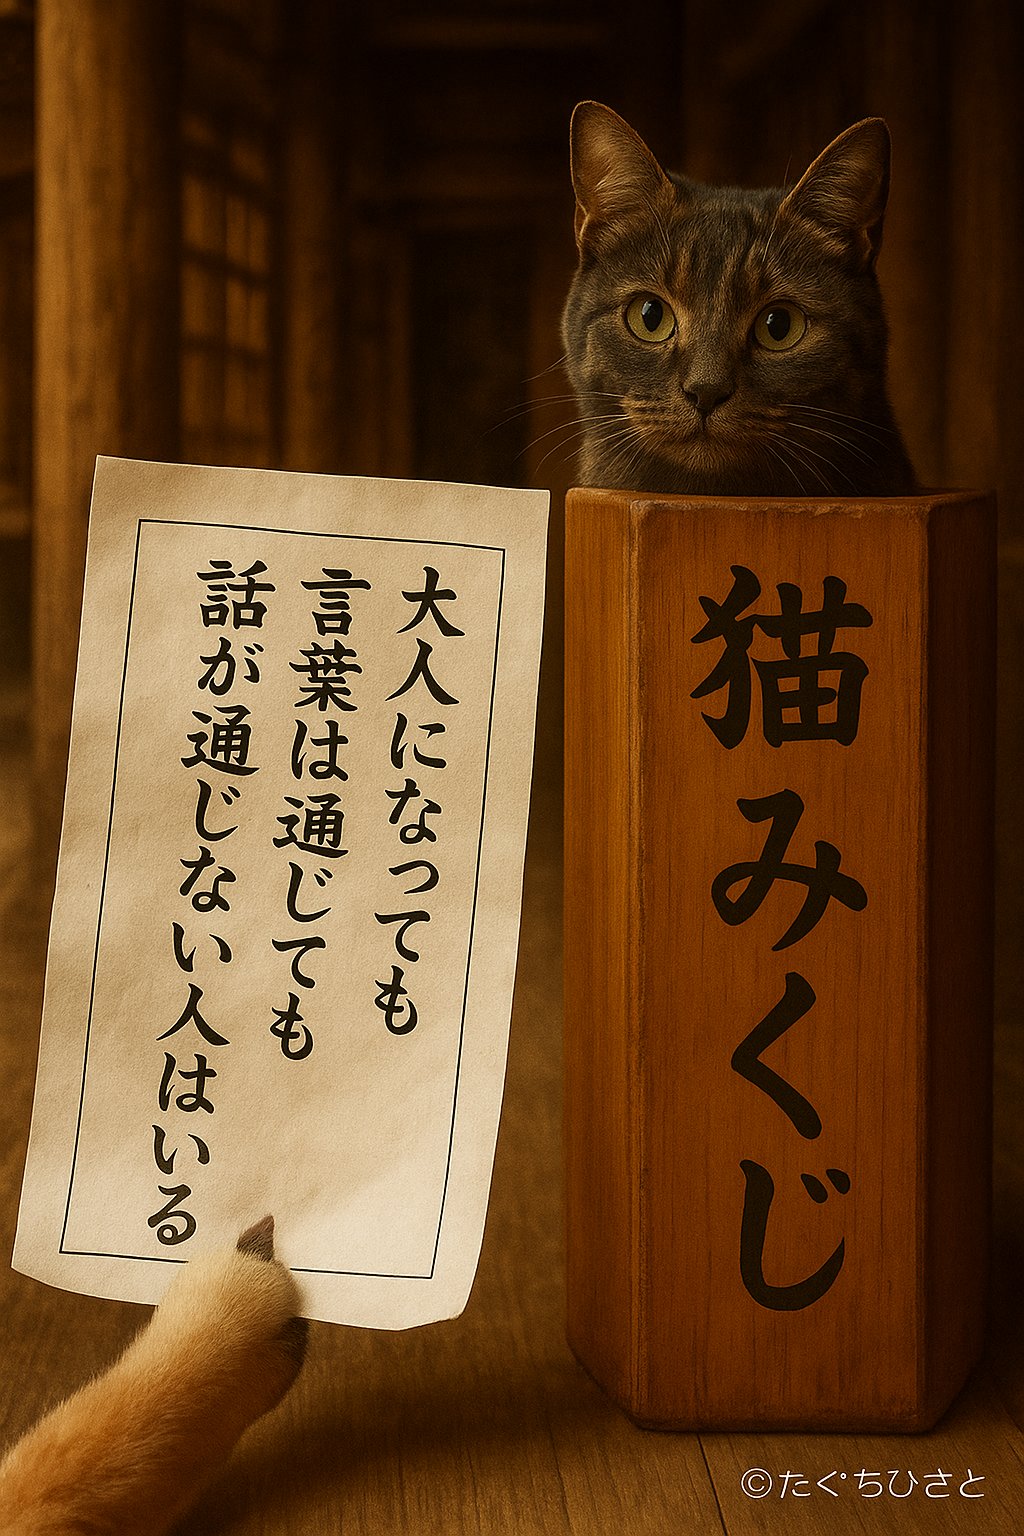 大人になっても
言葉は通じても
話が通じない人はいる
猫みくじ
©たぐちひさと